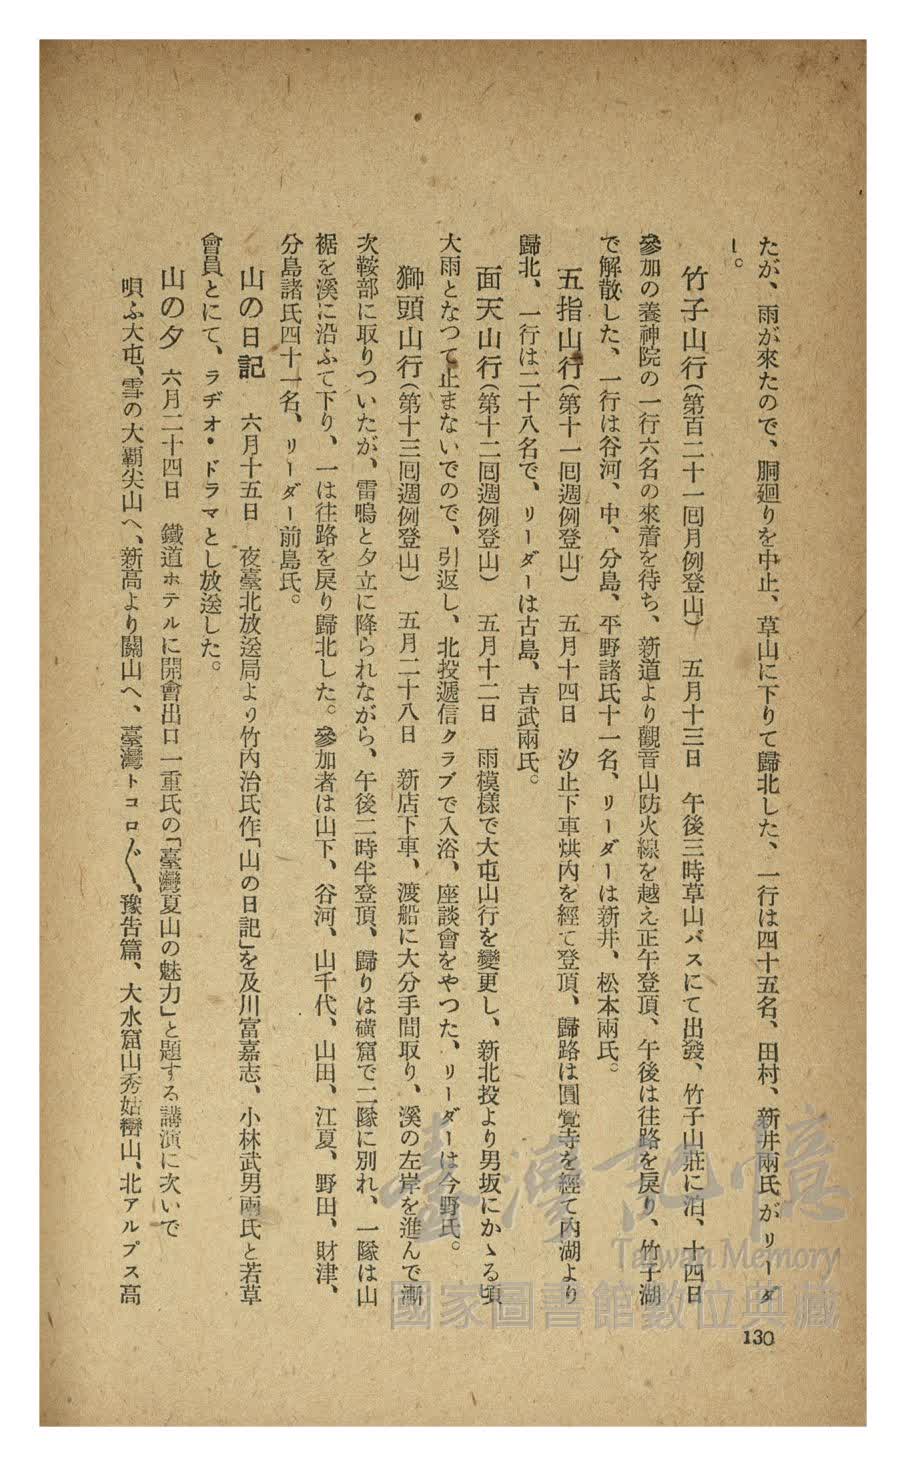 たが、雨が來たので、胴廻りを中止、草山に下りて歸北した、一行は四十五名、田村、新井兩氏がリーダ
ー。
竹子山行(第百二十一囘月例登山) 五月十三日 午後三時草山バスにて出發、竹子山莊に泊、十四日
參加の養神院の一行六名の來着を待ち、新道より觀音山防火線を越え正午登頂、午後は往路を戻り、竹子湖
で解散した、一行は谷河、中、分島、平野諸氏十一名、リーダーは新井、松本兩氏。
五指山行(第十一囘週例登山) 五月十四日 汐止下車烘内を經て登頂、歸路は圓覺寺を經て内湖より
歸北、一行は二十八名で、リーダーは古島、吉武兩氏。
面天山行(第十二囘週例登山) 五月十二日 雨模樣で大屯山行を變更し、新北投より男坂にかゝる頃
大雨となつて止まないでので、引返し、北投遞信クラブで入浴、座談會をやつた、リーダーは今野氏。
獅頭山行(第十三囘週例登山) 五月二十八日 新店下車、渡船に大分手間取り、溪の左岸を進んで漸
次鞍部に取りついたが、雷鳴と夕立に降られながら、午後二時半登頂、歸りは磺窟で二隊に別れ、一隊は山
裾を溪に沿ふて下り、一は往路を戻り歸北した。參加者は山下、谷河、山千代、山田、江夏、野田、財津、
分島諸氏四十一名、リーダー前島氏。
山の日記 六月十五日 夜臺北放送局より竹内治氏作「山の日記」を及川富嘉志、小林武男兩氏と若草
會員とにて、ラヂオ・ドラマとし放送した。
山の夕 六月二十四日 鐵道ホテルに開會出口一重氏の「臺灣夏山の魅力」と題する講演に次いで
唄ふ大屯、雪の大霸尖山へ、新高より關山へ、臺灣トコロ〴〵、豫告篇、大水窟山秀姑巒山、北アルプス高
130
臺灣記憶
Taiwan Memory
國家圖書館數位典藏